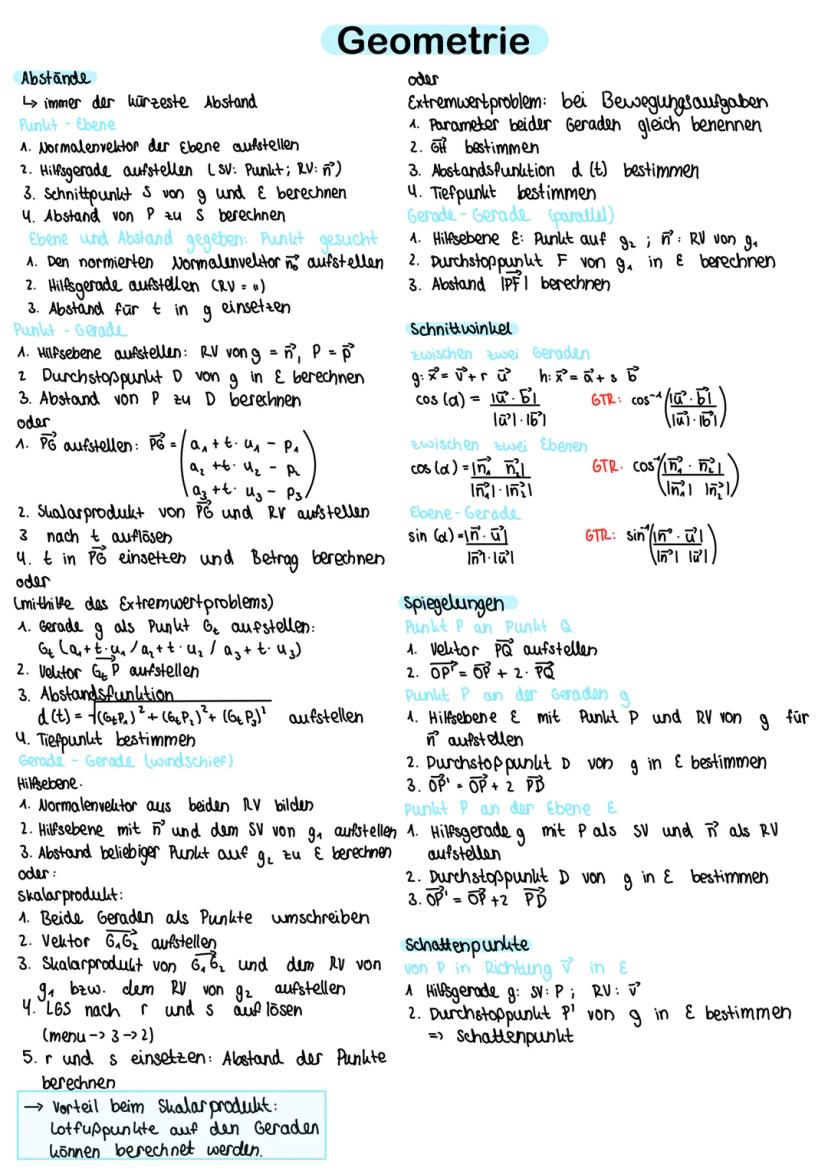 Geometrie
Abstände
↳ immer der kürzeste Abstand
Punkt - Ebene
1. Normalenvektor der Ebene aufstellen
2. Hilfsgerade aufstellen (SV: Punkt; RV: n⃗)
3. Schnittpunkt S von g und E berechnen
4. Abstand von P zu S berechnen
Ebene und Abstand gegeben: Punkt gesucht
1. Den normierten Normalenvektor n₀⃗ aufstellen
2. Hilfsgerade aufstellen (RV = ")
3. Abstand für t in g einsetzen
Punkt - Gerade
1. Hilfsebene aufstellen: RV von g = n⃗, P = p⃗
2 Durchstoßpunkt D von g in E berechnen
3. Abstand von P zu D berechnen
oder
1. PG⃗ aufstellen: PG⃗ = (a₁ + t · u₁ - p₁
a₂ + t · u₂ - p₂
a₃ + t · u₃ - p₃)
2. Skalarprodukt von PG⃗ und RV aufstellen
3 nach t auflösen
4. t in PG⃗ einsetzen und Betrag berechnen
oder
(mithilfe des Extremwertproblems)
1. Gerade g als Punkt Gₜ aufstellen:
Gₜ (a₁ + t · u₁ / a₂ + t · u₂ / a₃ + t · u₃)
2. Vektor GₜP⃗ aufstellen
3. Abstandsfunktion
d(t) = √((GₜP₁)² + (GₜP₂)² + (GₜP₃)²) aufstellen
4. Tiefpunkt bestimmen
Gerade - Gerade (windschief)
Hilfsebene.
1. Normalenvektor aus beiden RV bilden
2. Hilfsebene mit n⃗ und dem SV von g₁ aufstellen
3. Abstand beliebiger Punkt auf g₂ zu E berechnen
oder:
Skalarprodukt:
1. Beide Geraden als Punkte umschreiben
2. Vektor G₁G₂⃗ aufstellen
3. Skalarprodukt von G₁G₂⃗ und dem RV von
g₁ bzw. dem RV von g₂ aufstellen
4. LGS nach r und s auflösen
(menu -> 3 -> 2)
5. r und s einsetzen: Abstand der Punkte
berechnen
→ Vorteil beim Skalarprodukt:
Lotfußpunkte auf den Geraden
können berechnet werden.
oder
Extremwertproblem: bei Bewegungsaufgaben
1. Parameter beider Geraden gleich benennen
2. GH⃗ bestimmen
3. Abstandsfunktion d (t) bestimmen
4. Tiefpunkt bestimmen
Gerade - Gerade (parallel)
1. Hilfsebene E: Punkt auf g₂ ; n⃗: RV von g₁
2. Durchstoßpunkt F von g₁ in E berechnen
3. Abstand |PF⃗| berechnen
Schnittwinkel
zwischen zwei Geraden
g: x⃗ = v⃗ + r u⃗ h: x⃗ = a⃗ + s b⃗
cos (α) = |u⃗ · b⃗| / |u⃗| · |b⃗| GTR: cos⁻¹(|u⃗ · b⃗| / |u⃗| · |b⃗|)
zwischen zwei Ebenen
cos (α) = |n₁⃗ n₂⃗| / |n₁⃗| · |n₂⃗| GTR. cos⁻¹(|n₁⃗ · n₂⃗| / |n₁⃗| |n₂⃗|)
Ebene - Gerade
sin (α) = |n⃗ · u⃗| / |n⃗| · |u⃗| GTR: sin⁻¹(|n⃗ · u⃗| / |n⃗| |u⃗|)
Spiegelungen
Punkt P an Punkt Q
1. Vektor PQ⃗ aufstellen
2. OP'⃗ = OP⃗ + 2 · PQ⃗
Punkt P an der Geraden g
1. Hilfsebene E mit Punkt P und RV von g für
n⃗ aufstellen
2. Durchstoßpunkt D von g in E bestimmen
3. OP⃗' = OP⃗ + 2 PD⃗
Punkt P an der Ebene E
1. Hilfsgerade g mit P als SV und n⃗ als RV
aufstellen
2. Durchstoßpunkt D von g in E bestimmen
3. OP⃗' = OP⃗ + 2 PD⃗
Schattenpunkte
von P in Richtung v⃗ in E
1 Hilfsgerade g: SV: P ; RV: v⃗
2. Durchstoßpunkt P' von g in E bestimmen
=> Schattenpunkt